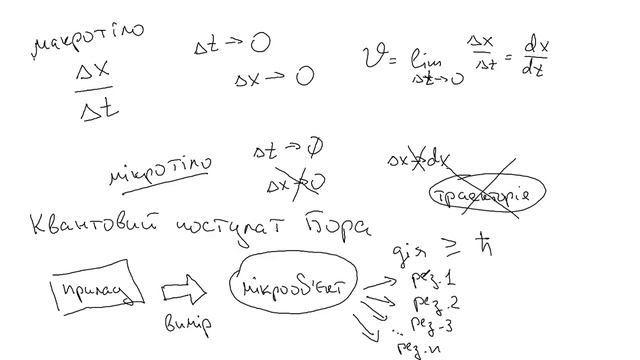 макротіло
Δx
Δt
Δt → 0
Δx → 0
v = lim Δx/Δt = dx/dt
Δt→0
мікротіло
Δt → 0
Δx → 0
Δx → dx
траєкторія
Квантовий постулат Бора
прилад
вимір
мікрооб'єкт
дія ≥ ħ
рез.1
рез.2
... рез.3
рез.n